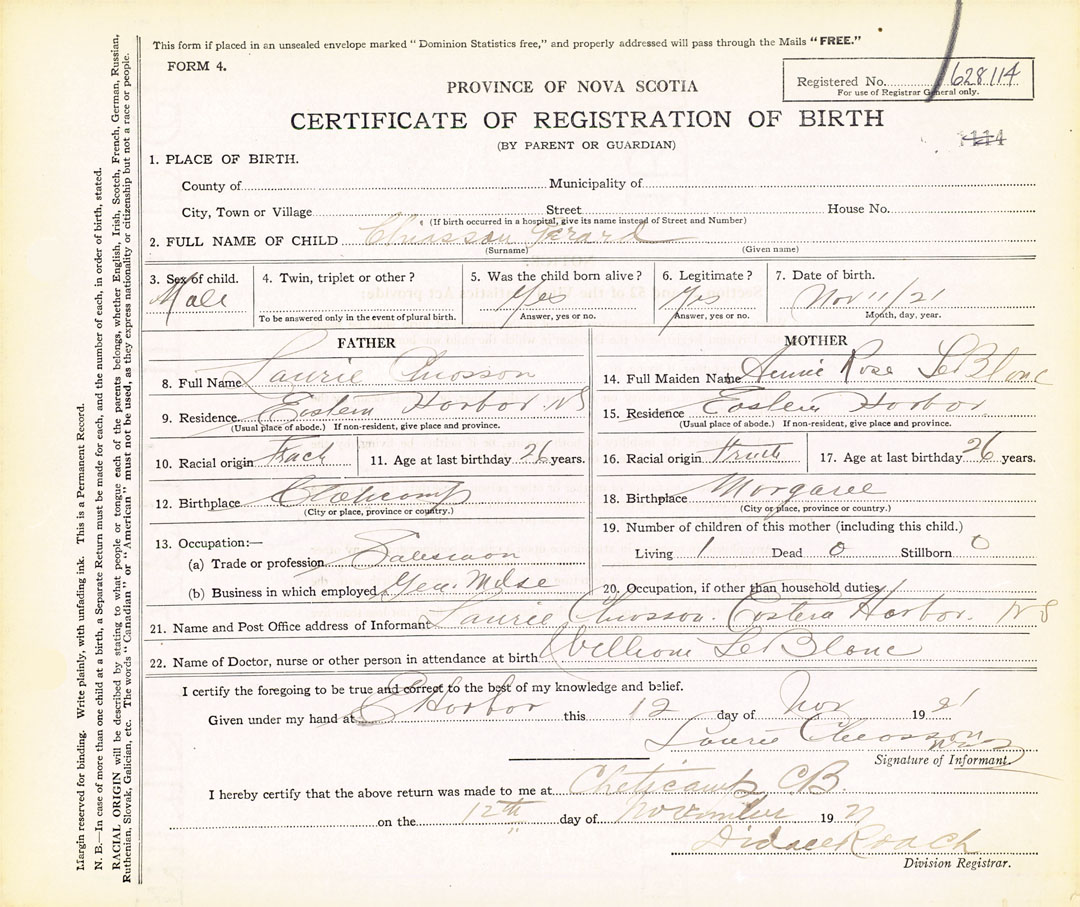 This form if placed in an unsealed envelope marked "Dominion Statistics free," and properly addressed will pass through the Mails "FREE."
FORM 4.
Registered No. 628114
For use of Registrar General only.
PROVINCE OF NOVA SCOTIA
CERTIFICATE OF REGISTRATION OF BIRTH
(BY PARENT OR GUARDIAN)
1. PLACE OF BIRTH.
County of Municipality of
City, Town or Village Street House No.
(If birth occurred in a hospital, give its name instead of Street and Number)
2. FULL NAME OF CHILD Chiasson Gerard
(Surname) (Given name)
3. Sex of child. 4. Twin, triplet or other? 5. Was the child born alive? 6. Legitimate? 7. Date of birth.
Male Yes Yes Nov 11/21
To be answered only in the event of plural birth. Answer, yes or no. Answer, yes or no. Month, day, year.
FATHER
8. Full Name Laurie Chiosson
9. Residence Eastern Harbor NS
(Usual place of abode.) If non-resident, give place and province.
10. Racial origin 11. Age at last birthday 26 years.
12. Birthplace
(City or place, province or country.)
13. Occupation:—
(a) Trade or profession Salesman
(b) Business in which employed Gen. Mdse
MOTHER
14. Full Maiden Name Annie Rose LeBlanc
15. Residence Eastern Harbor
(Usual place of abode.) If non-resident, give place and province.
16. Racial origin 17. Age at last birthday 26 years.
18. Birthplace Margaree
(City or place, province or country.)
19. Number of children of this mother (including this child.)
Living 1 Dead 0 Stillborn 0
20. Occupation, if other than household duties
21. Name and Post Office address of Informant Laurie Chiosson. Eastern Harbor. NS
22. Name of Doctor, nurse or other person in attendance at birth William LeBlanc
I certify the foregoing to be true and correct to the best of my knowledge and belief.
Given under my hand at E Harbor this 12 day of Nov 1921
Laurie Chiosson
Signature of Informant.
I hereby certify that the above return was made to me at Cheticamp CB.
on the 12th day of November 192
Didace Roach
Division Registrar.
Margin reserved for binding. Write plainly, with unfading ink. This is a Permanent Record.
N. B.—In case of more than one child at a birth, a Separate Return must be made for each, and the number of each, in order of birth, stated.
RACIAL ORIGIN will be described by stating to what people or tongue each of the parents belongs, whether English, Irish, Scotch, French, German, Russian,
Ruthenian, Slovak, Galician, etc. The words "Canadian" or "American" must not be used, as they express nationality or citizenship but not a race or people.